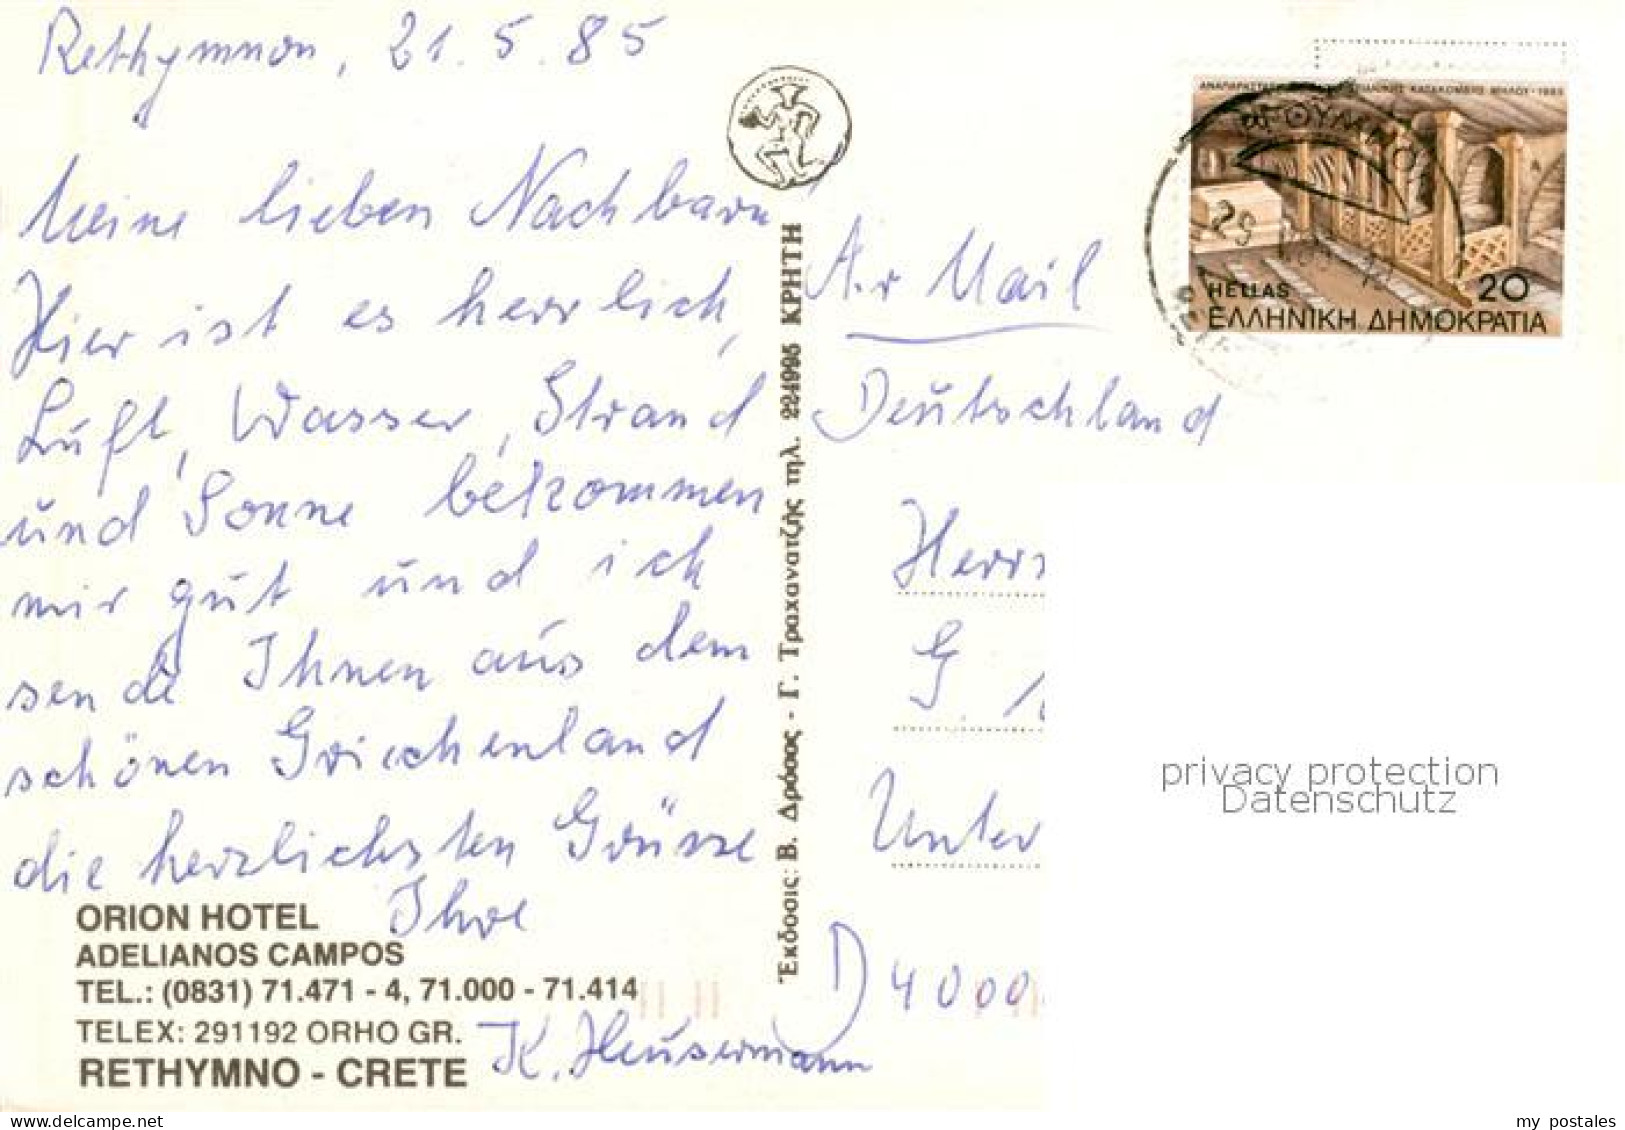 Rethymnon, 21.5.85
Meine lieben Nachbarn
Hier ist es herrlich,
Luft, Wasser, Strand
und Sonne bekommen
mir gut und ich
sende Ihnen aus dem
schönen Griechenland
die herzlichsten Grüsse
Ihre
K. Heusermann
ORION HOTEL
ADELIANOS CAMPOS
TEL.: (0831) 71.471 - 4, 71.000 - 71.414
TELEX: 291192 ORHO GR.
RETHYMNO - CRETE
Ἐκδοσις: Β. Δρόσος - Γ. Τραχανατζής τηλ. 224995 ΚΡΗΤΗ
Air Mail
Deutschland
Herrn
G.
Unter
D 4000
HELLAS 20
ΕΛΛΗΝΙΚΗ ΔΗΜΟΚΡΑΤΙΑ
privacy protection
Datenschutz
my postales